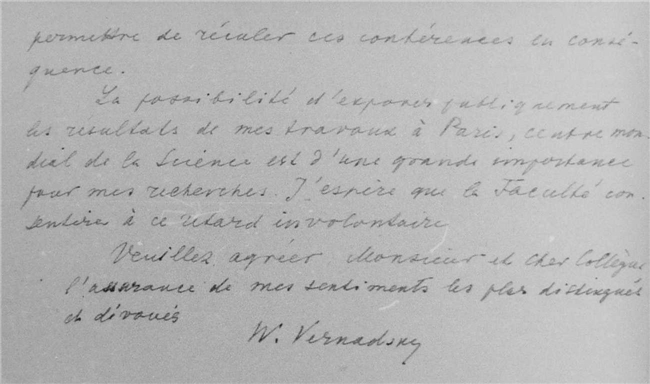 permettre de réculer ces conférences en consé-
quence.
La possibilité d'exposer publiquement
les résultats de mes travaux à Paris, centre mon-
dial de la Science est d'une grande importance
pour mes recherches. J'espère que la Faculté con-
sentira à ce retard involontaire
Veuillez agréer Monsieur et cher Collègue
l'assurance de mes sentiments les plus distingués
et dévoués
W. Vernadsky